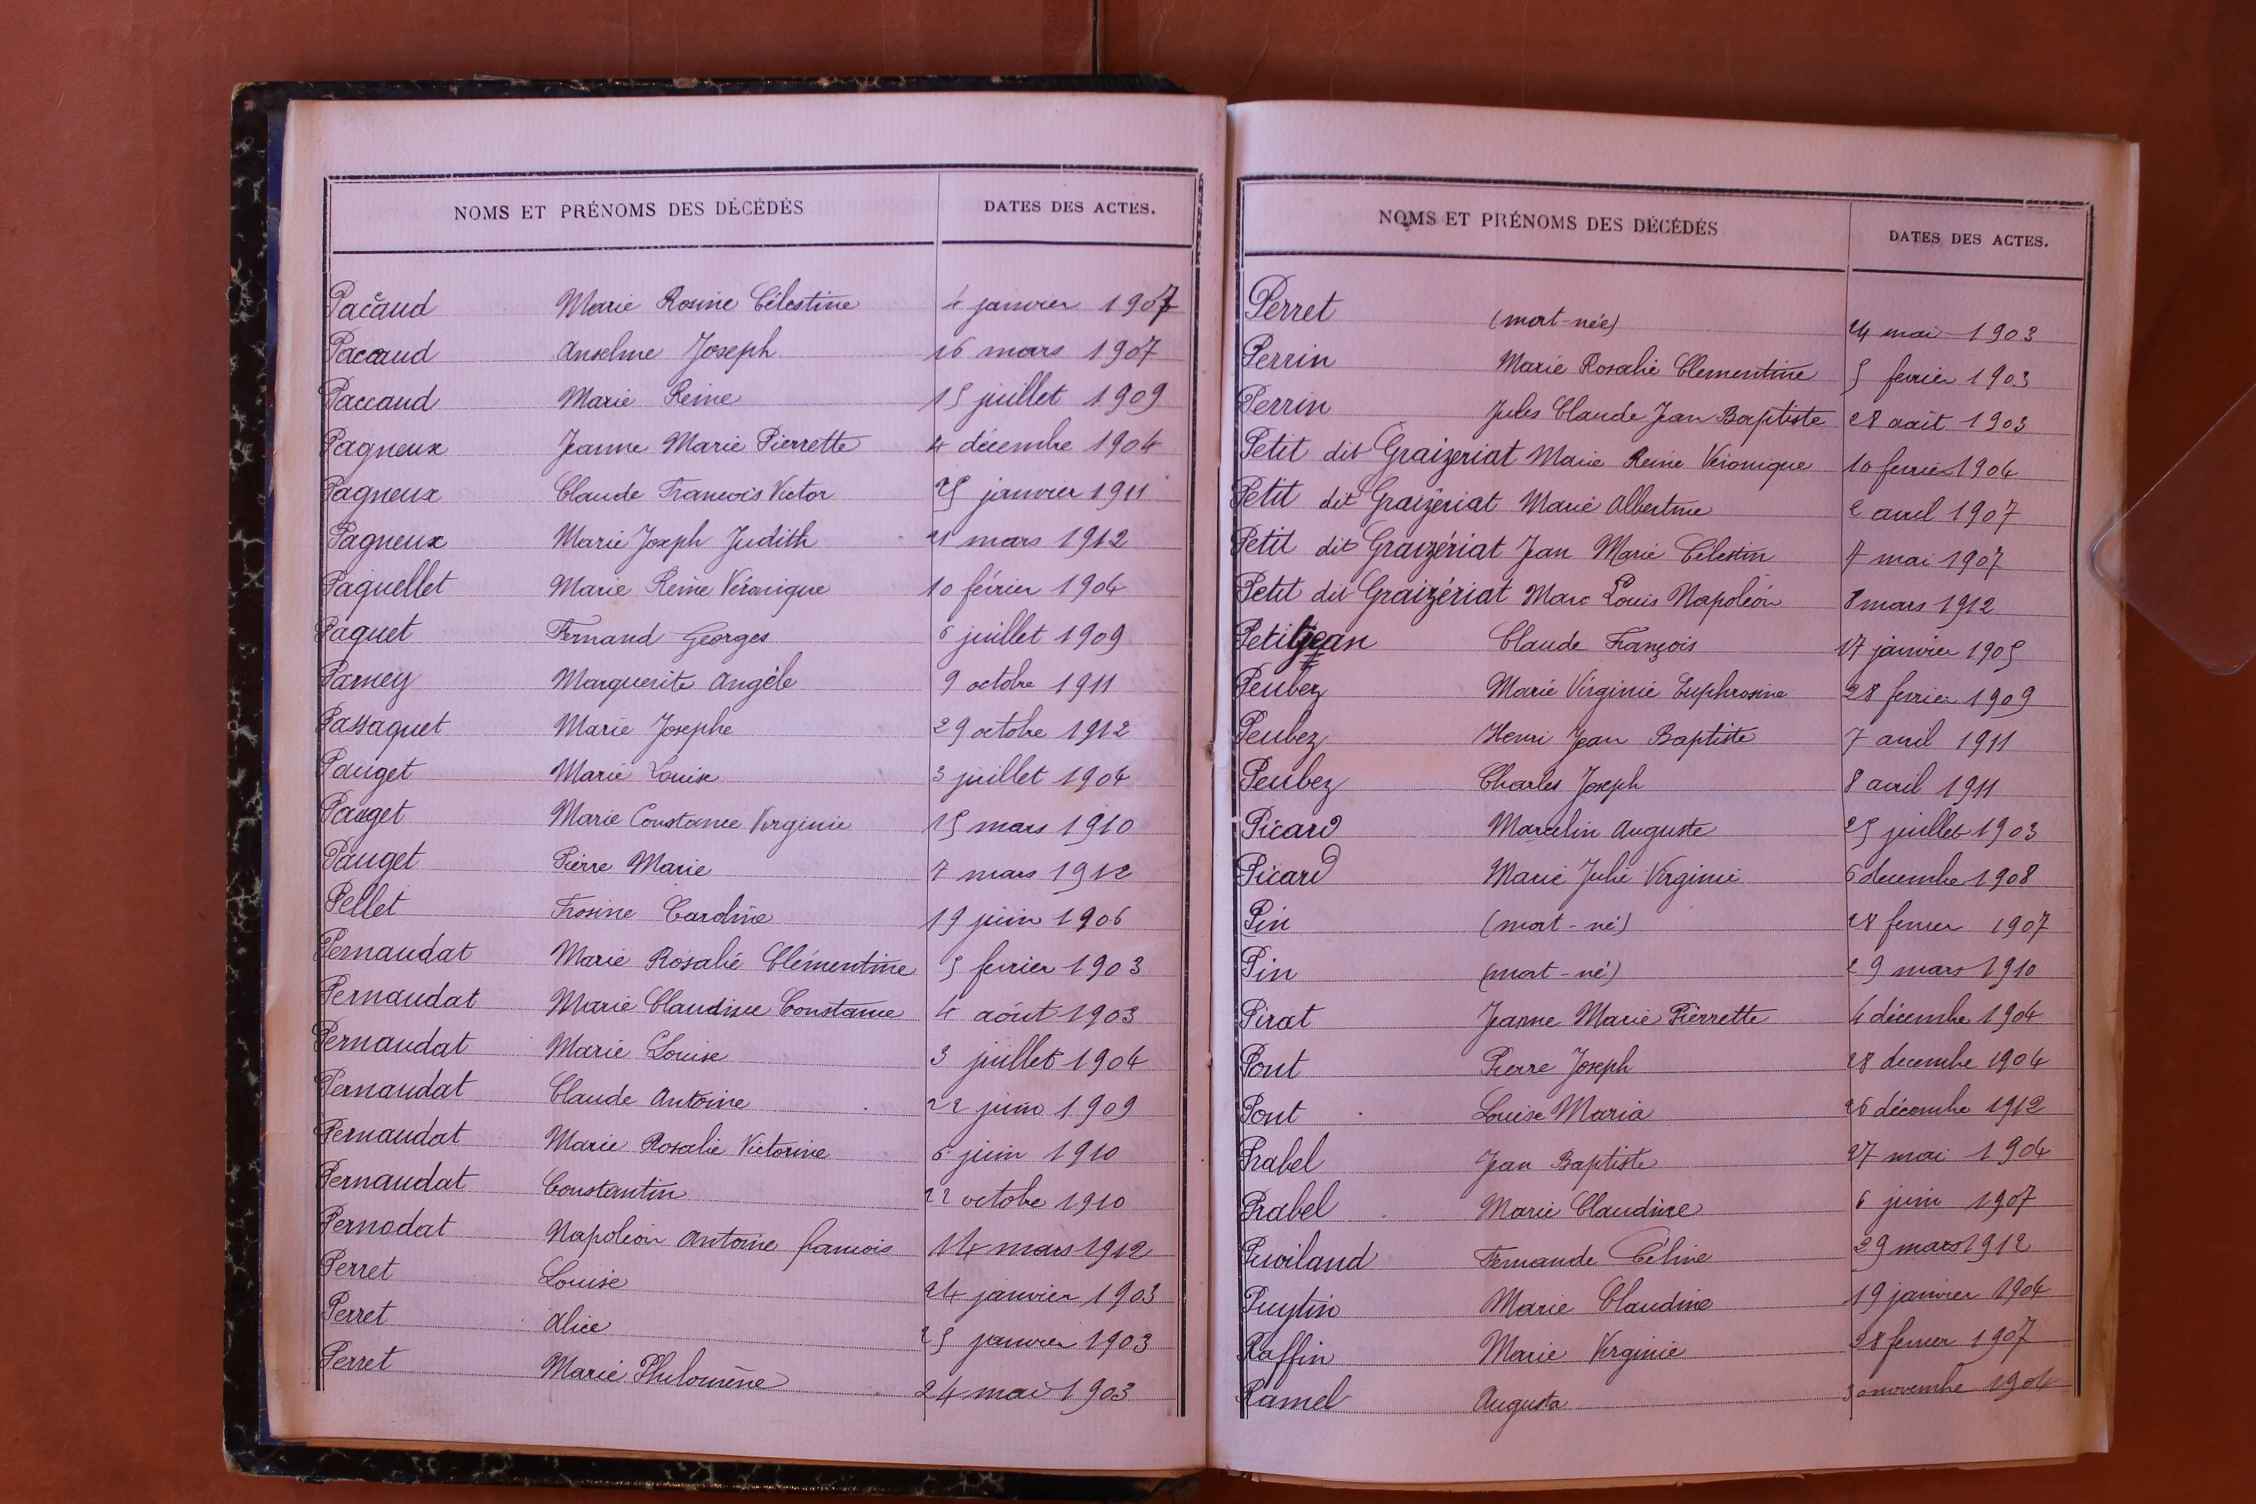 NOMS ET PRÉNOMS DES DÉCÉDÉS DATES DES ACTES.
Paccaud Marie Rosine Célestine 4 janvier 1907
Paccaud Anselme Joseph 16 mars 1907
Paccaud Marie Reine 15 juillet 1909
Pagneux Jeanne Marie Pierrette 4 décembre 1904
Pagneux Claude Francois Victor 25 janvier 1911
Pagneux Marie Joseph Judith 21 mars 1912
Paguellet Marie Reine Véronique 10 février 1904
Paquet Fernand Georges 6 juillet 1909
Parney Marguerite Angèle 9 octobre 1911
Passaquet Marie Josephe 29 octobre 1912
Pauget Marie Louise 3 juillet 1904
Pauget Marie Constance Virginie 15 mars 1910
Pauget Pierre Marie 7 mars 1912
Pellet Frosine Caroline 19 juin 1906
Pernaudat Marie Rosalie Clémentine 5 fevrier 1903
Pernaudat Marie Claudine Constance 4 août 1903
Pernaudat Marie Louise 3 juillet 1904
Pernaudat Claude Antoine 22 juin 1909
Pernaudat Marie Rosalie Victorine 6 juin 1910
Pernaudat Constantin 22 octobre 1910
Pernodat Napoléon Antoine francois 14 mars 1912
Perret Louise 24 janvier 1903
Perret Alice 25 janvier 1903
Perret Marie Philomène 24 mai 1903
NOMS ET PRÉNOMS DES DÉCÉDÉS DATES DES ACTES.
Perret (mort-née) 24 mai 1903
Perrin Marie Rosalie Clementine 5 fevrier 1903
Perrin Jules Claude Jean Baptiste 28 août 1903
Petit dit Graizeriat Marie Reine Véronique 10 fevrier 1904
Petit dit Graizériat Marie Albertine 2 avril 1907
Petit dit Graizériat Jean Marie Célestin 7 mai 1907
Petit dit Graizériat Marc Louis Napoléon 8 mars 1912
Petitjean Claude François 17 janvier 1905
Peubez Marie Virginie Euphrosine 28 fevrier 1909
Peubez Henri Jean Baptiste 7 avril 1911
Peubez Charles Joseph 8 avril 1911
Picard Marcelin Auguste 25 juillet 1903
Picard Marie Julie Virginie 6 decembre 1908
Pin (mort-né) 28 fevrier 1907
Pin (mort-né) 29 mars 1910
Pirat Jeanne Marie Pierrette 4 décembre 1904
Pont Pierre Joseph 28 decembre 1904
Pont Louise Maria 26 décembre 1912
Prabel Jean Baptiste 27 mai 1904
Prabel Marie Claudine 6 juin 1907
Fernande Céline 29 mars 1912
Puytin Marie Claudine 19 janvier 1904
Raffin Marie Virginie 28 fevrier 1907
Ramel Augusta 30 novembre 1904